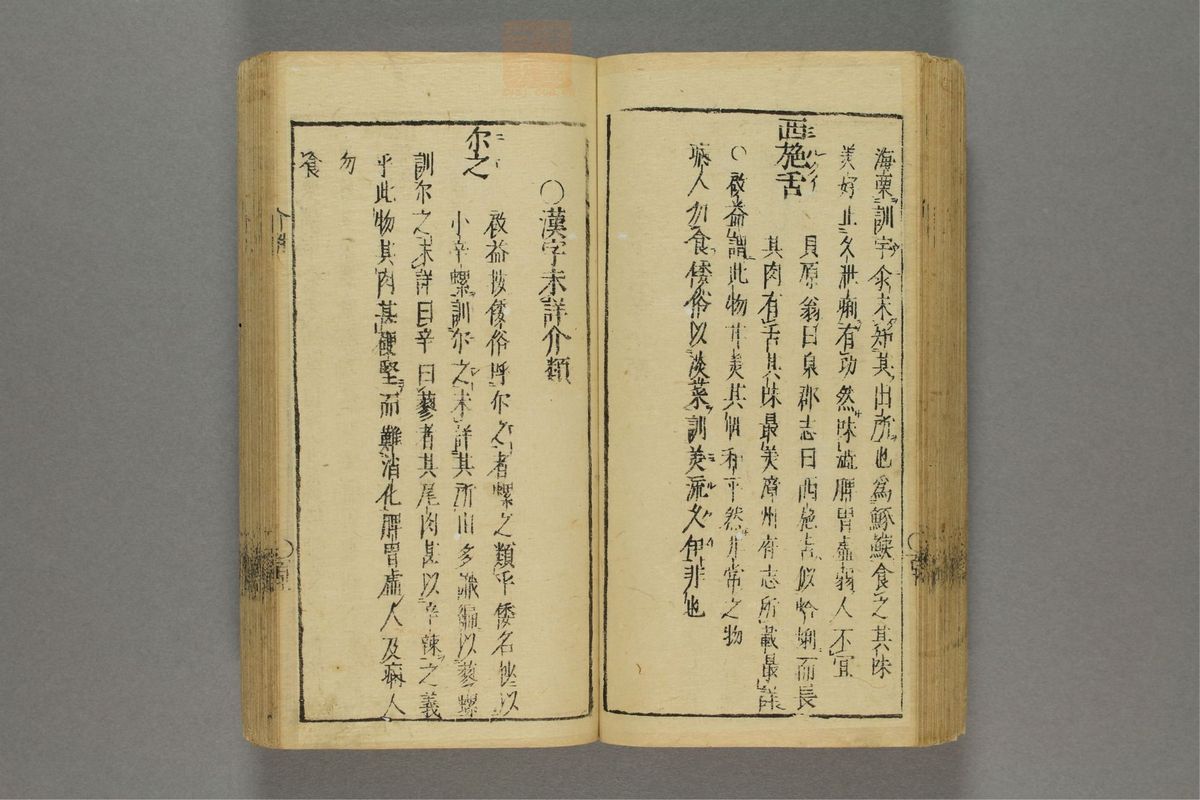 海栗訓字余未知其出所也為鯸鮧食之其味
美好止久泄痢有功然味澁脾胃虚弱人不宜
西施舌
貝原翁曰泉郡志曰西施舌似蛤蜊而長
其肉有舌其味最美漳州有志所載最詳
○啟益謂此物甘美其性和平然非常之物
病人勿食倭俗以淡菜訓美流久伊非也
○漢字未詳介類
尔之
啟益按倭俗呼尔之者螺之類乎倭名抄以
小辛螺訓尔之未詳其所由多識編以蓼螺
訓尔之未詳曰辛曰蓼者其尾肉甚以辛辣之義
乎此物其肉甚硬堅而難消化脾胃虚人及病人
勿
食